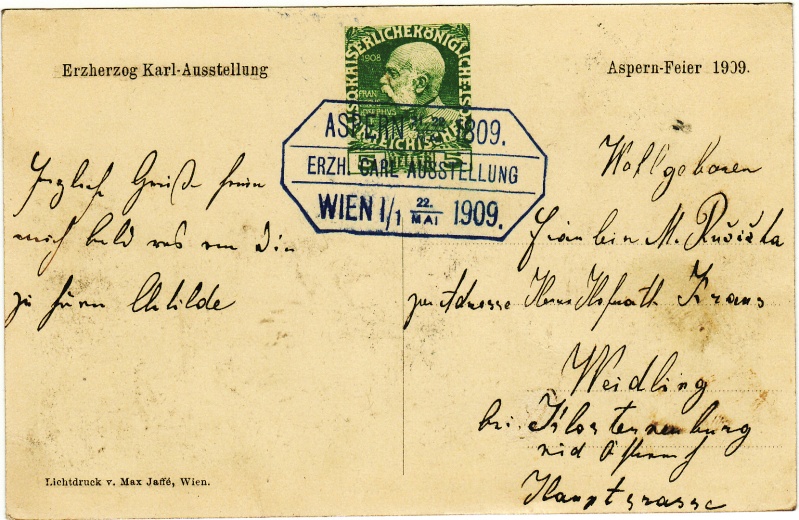 Erzherzog Karl-Ausstellung
Aspern-Feier 1909.
KAISERLICHEKÖNIGLICHE
1908
ASPERN 21.-22. 1809.
ERZH. CARL-AUSSTELLUNG
WIEN 1/1 22. MAI 1909.
Herzliche Grüße freue
mich bald was von Dir
zu hören Clotilde
Wohlgeboren
Fräulein M. Růžička
zur Adresse Herrn Hofrath Kraus
Weidling
bei Klosterneuburg
Hauptstrasse
Lichtdruck v. Max Jaffé, Wien.